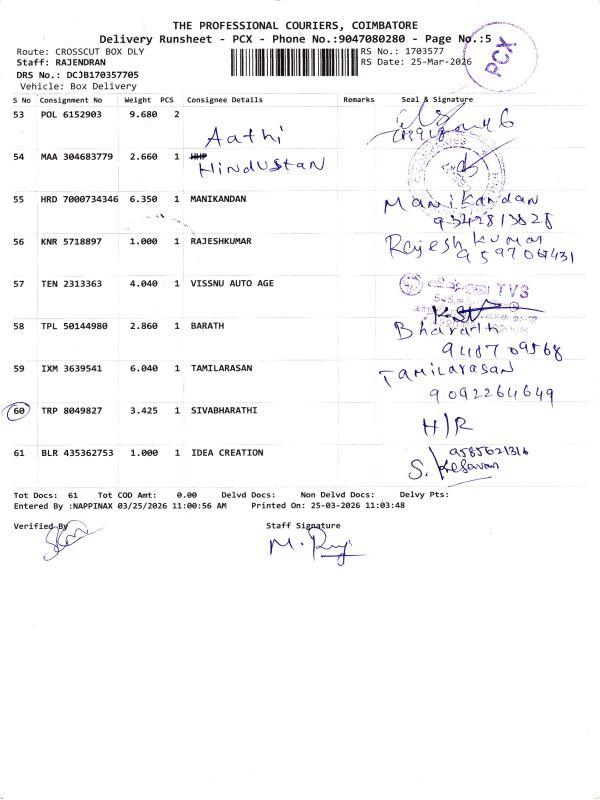 THE PROFESSIONAL COURIERS, COIMBATORE
Delivery Runsheet - PCX - Phone No.:9047080280 - Page No.:5
Route: CROSSCUT BOX DLY RS No.: 1703577
Staff: RAJENDRAN RS Date: 25-Mar-2026
DRS No.: DCJB170357705
Vehicle: Box Delivery
PCX
S No Consignment No Weight PCS Consignee Details Remarks Seal & Signature
53 POL 6152903 9.680 2 Aathi
54 MAA 304683779 2.660 1 Hindustan
55 HRD 7000734346 6.350 1 MANIKANDAN Manikandan
9342813828
56 KNR 5718897 1.000 1 RAJESHKUMAR Rajesh kumar
9597067431
57 TEN 2313363 4.040 1 VISSNU AUTO AGE TVS
58 TPL 50144980 2.860 1 BARATH Bharath
59 IXM 3639541 6.040 1 TAMILARASAN Tamilarasan
9092264649
60 TRP 8049827 3.425 1 SIVABHARATHI H/R
61 BLR 435362753 1.000 1 IDEA CREATION 9585621316
S. Kesavan
Tot Docs: 61 Tot COD Amt: 0.00 Delvd Docs: Non Delvd Docs: Delvy Pts:
Entered By :NAPPINAX 03/25/2026 11:00:56 AM Printed On: 25-03-2026 11:03:48
Verified By Staff Signature